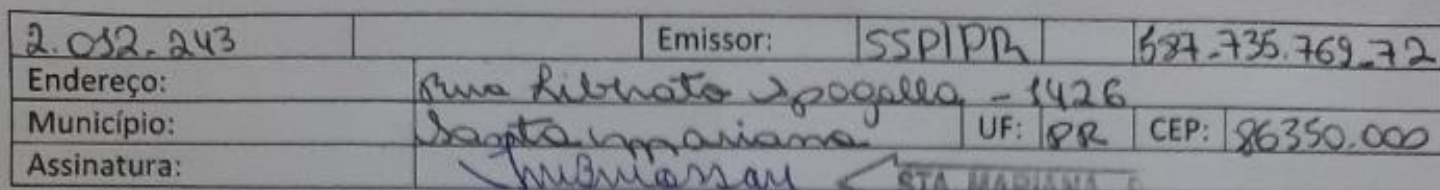 2.032.243 Emissor: SSP/PR 587.735.769-72
Endereço: Rua Librato Spogalla - 1426
Município: Santa mariana UF: PR CEP: 86350.000
Assinatura:
STA MARIANA